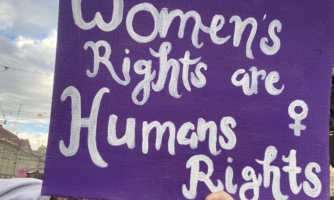 Women's
Rights are
Humans
Rights